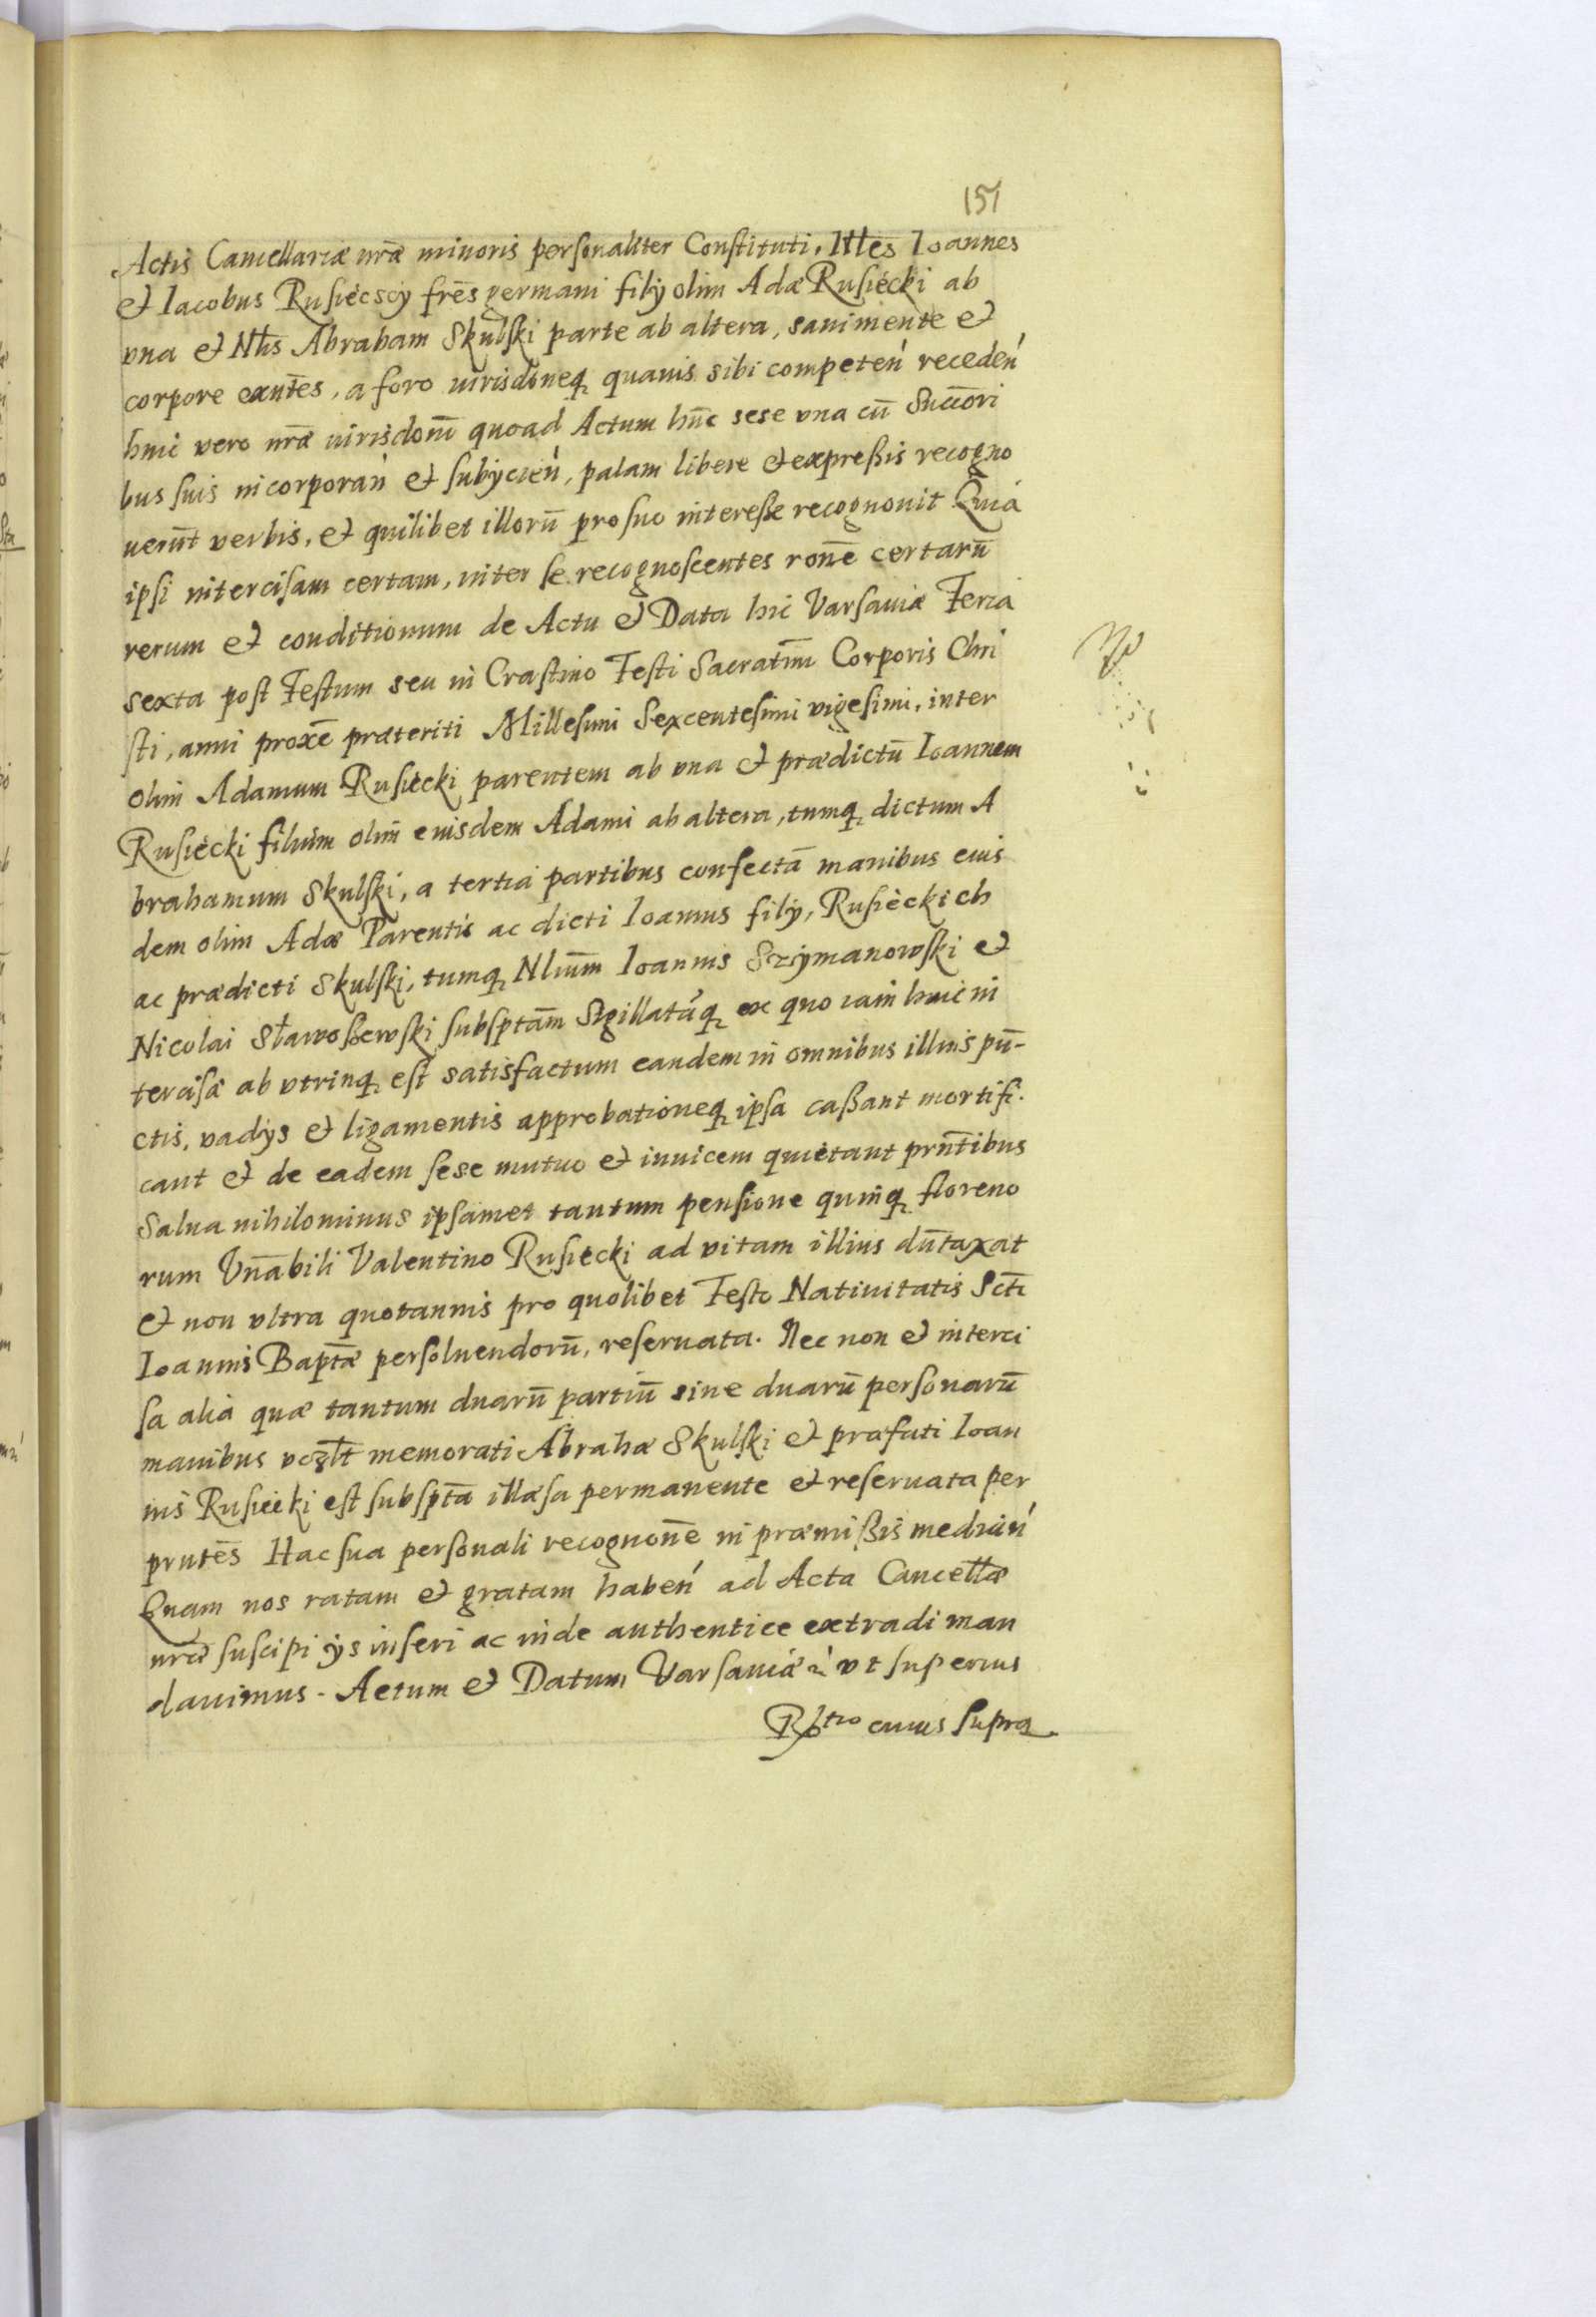 151
Actis Cancellariæ nr̃æ minoris personaliter Constituti. Nłes Ioannes
et Iacobus Rusiecscy fr̃es germani filÿ olim Adæ Rusiecki ab
vna et Nłis Abraham Skulski parte ab altera, sani mente et
corpore exñtes, a foro iurisdõneq, quauis sibi competeń recedeń
huic vero nr̃æ iurisdõni quoad Actum hũc sese vna cũ Succõri
bus suis incorporań et subÿcień, palam libere et expreßis recogno
uerũt verbis, et quilibet illorũ pro suo intereße recognouit Quia
ipsi intercisam certam, inter se recognoscentes rõne certarũ
rerum et conditionum de Actu et Data hic Varsauiæ Feria
sexta post Festum seu in Crastino Festi Sacratm̃i Corporis Chri
sti, anni proxẽ præteriti Millesimi Sexcentesimi vigesimi, inter
olim Adamum Rusiecki parentem ab vna et prædictũ Ioannem
Rusiecki filium olim eiusdem Adami ab altera, tumq, dictum A
brahamum Skulski, a tertia partibus confectã manibus eius
dem olim Adæ Parentis ac dicti Ioannis filÿ, Rusieckich
ac prædicti Skulski, tumq, Nlium̃ Ioannis Szÿmanowski et
Nicolai Sławoßewski subsptãm Sigillatãq, ex quo iam huic in
tercisæ ab vtrinq, est satisfactum eandem in omnibus illius pũ-
ctis, vadÿs et ligamentis approbationeq, ipsa caßant mortifi.
cant et de eadem sese mutuo et inuicem quietant prñtibus
Salua nihilominus ipsamet tantum pensione quinq, floreno
rum Vñabili Valentino Rusiecki ad vitam illius dũtaxat
et non vltra quotannis pro quolibet Festo Natiuitatis Sct̃i
Ioannis Bapt̃æ persoluendorũ, reseruata. Nec non et interci
sa alia quæ tantum duarũ partiũ siue duarũ personarũ
manibus vczłt memorati Abrahæ Skulski et præfati Ioan
nis Rusiecki est subsptã illæsa permanente et reseruata per
prntẽs Hac sua personali recognonẽ in præmißis mediań
Quam nos ratam et gratam habeń ad Acta Cancellæ
nræ suscipi ÿs inseri ac inde authentice extradi man
dauimus. Actum et Datum Varsauiæ ut superius
Rłtio cuius supra